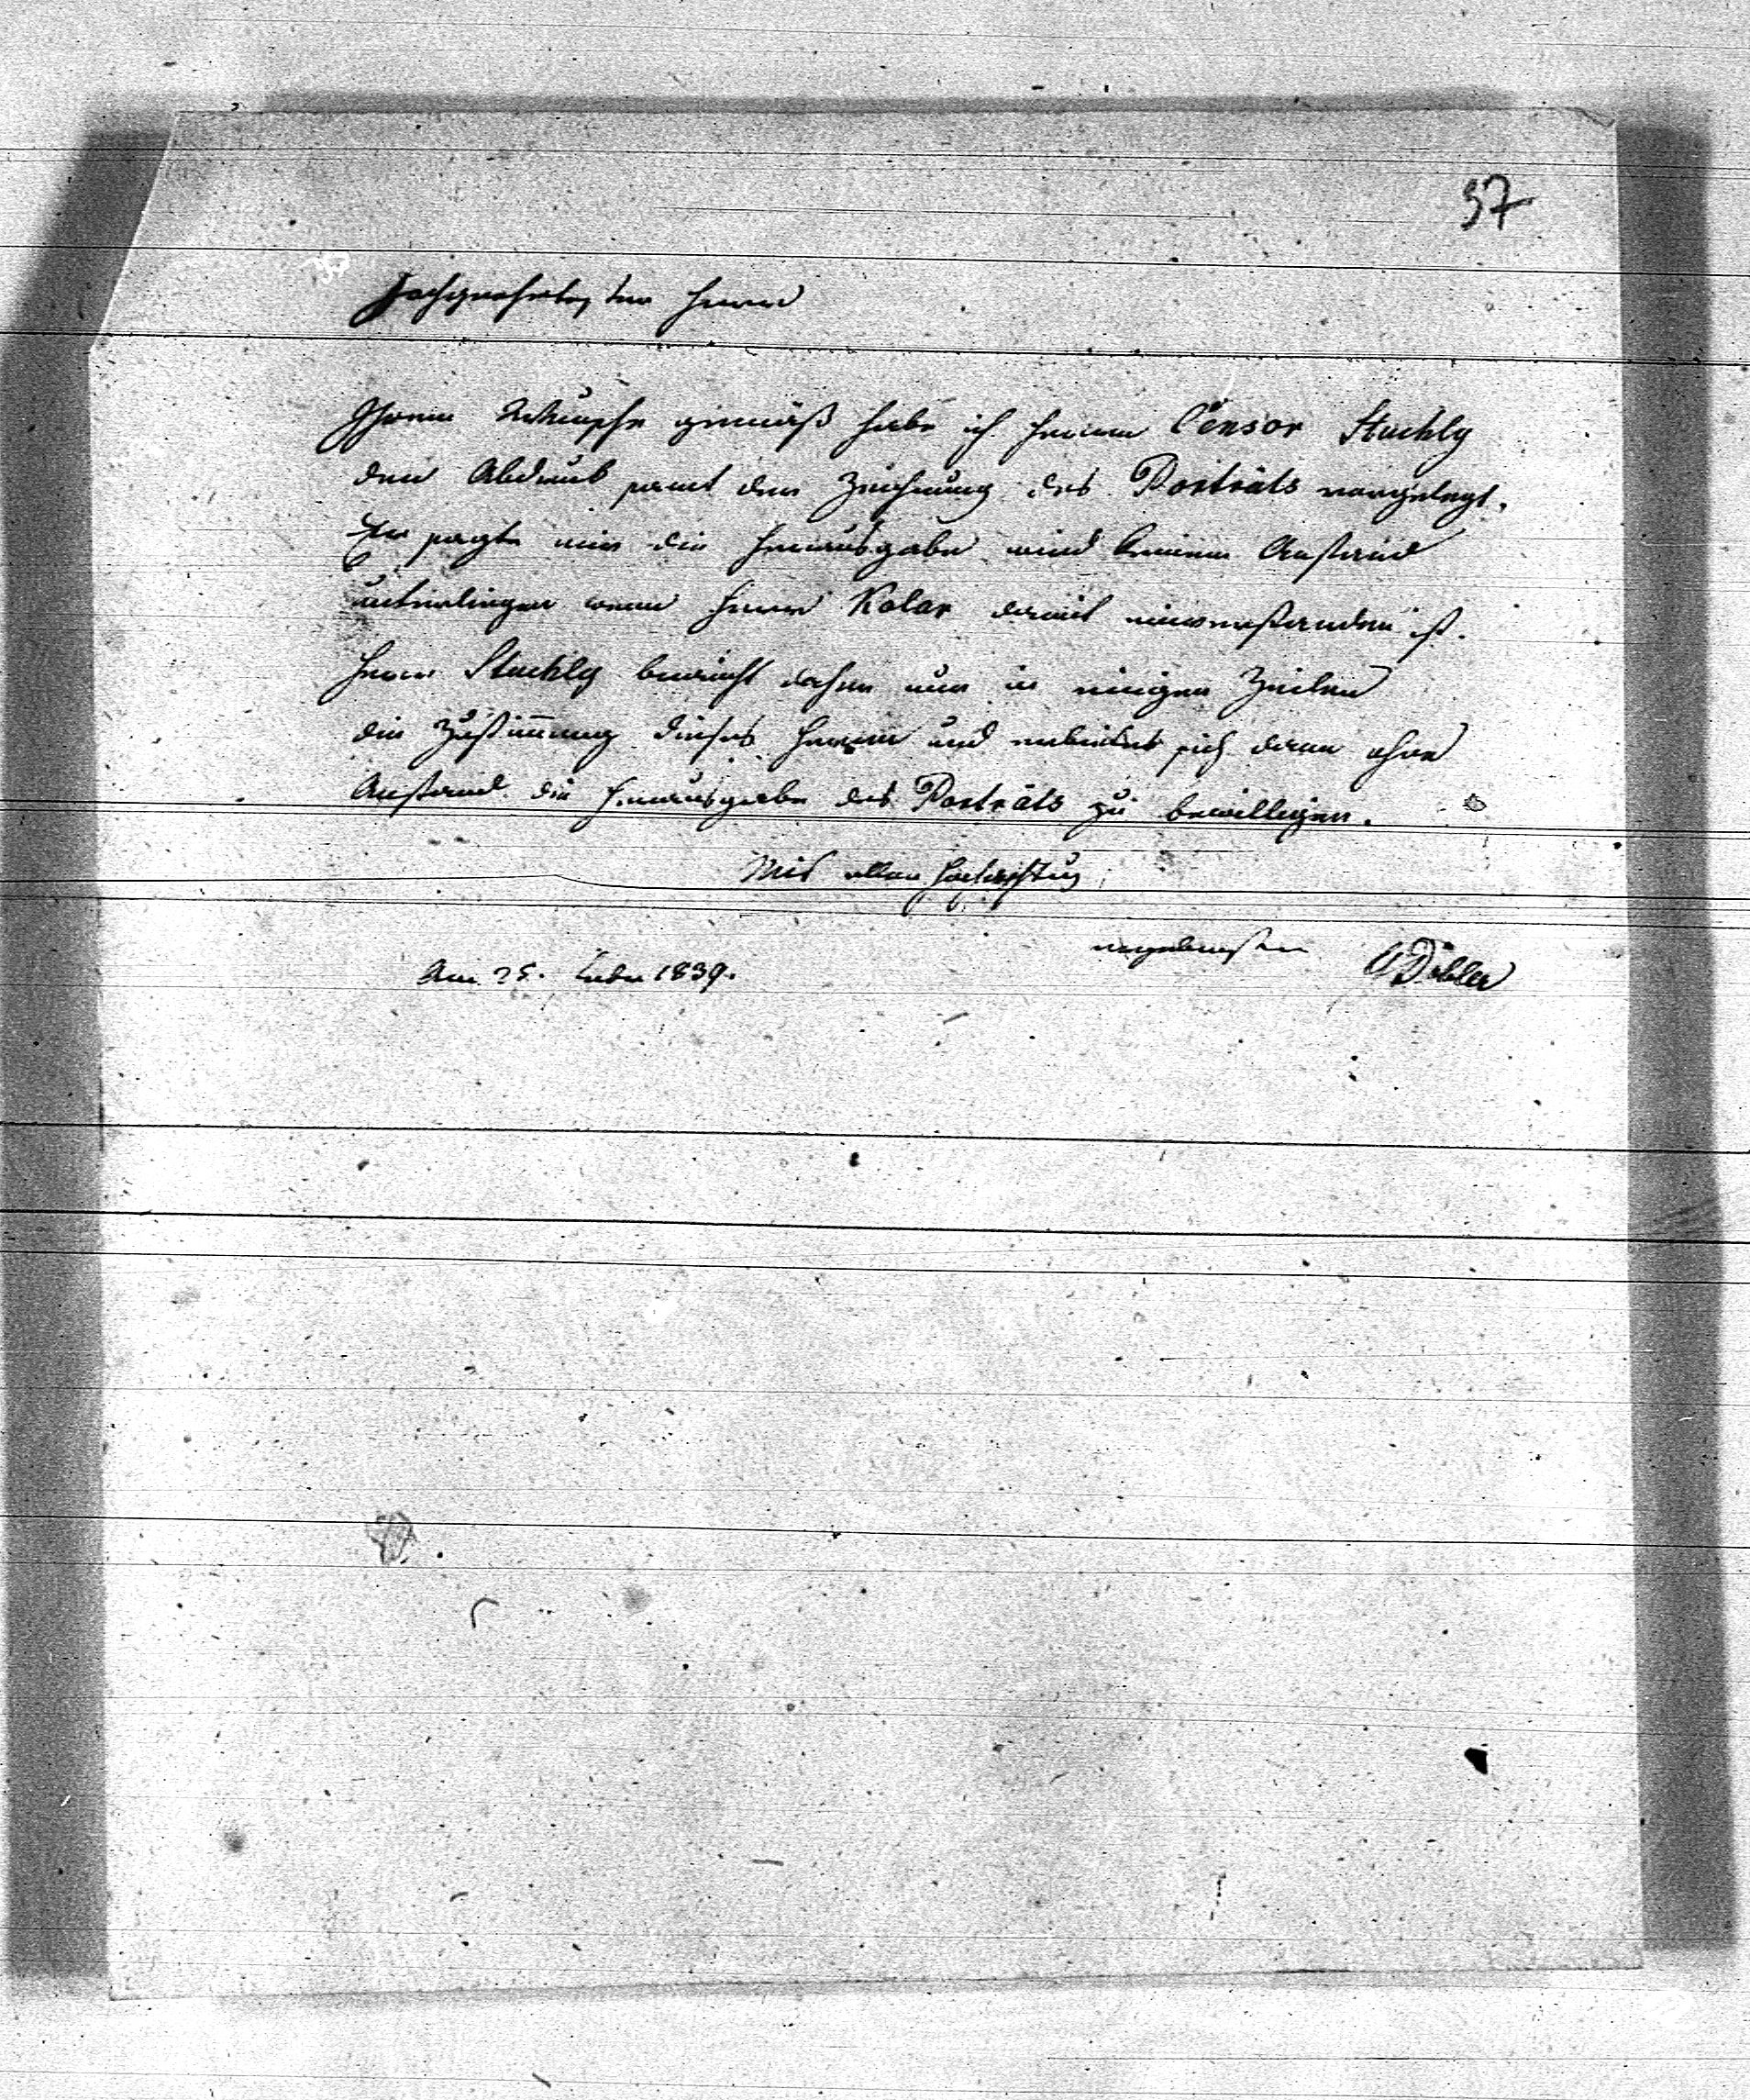 37
Hochgeehrtester Herr
Ihrem Wunsche gemäß habe ich Herrn Censor Stuchly
den Abdruck samt der Zeichnung des Porträts vorgelegt.
Er sagte mir die Herausgabe wird keinem Anstand
unterliegen wenn Herr Kolar damit einverstanden ist.
Herr Stuchly braucht daher nur in einigen Zeilen
die Zustimmung dieses Herrn und erbietet sich dann ohne
Anstand die Herausgabe des Porträts zu bewilligen.
Mit aller Hochachtung
ergebenster
Am 25. 1839.